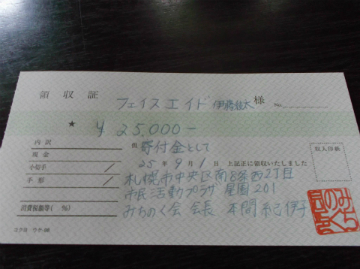 領収証 フェイスエイド 伊藤桂太 様 No.
★ ¥25,000-
内訳 但 寄付金として
現金 25年9月1日 上記正に領収いたしました
小切手
手形 札幌市中央区南8条西2丁目
市民活動プラザ 星園201
消費税額等( %) みちのく会 会長 本間紀伊子
収入印紙
みちのく会